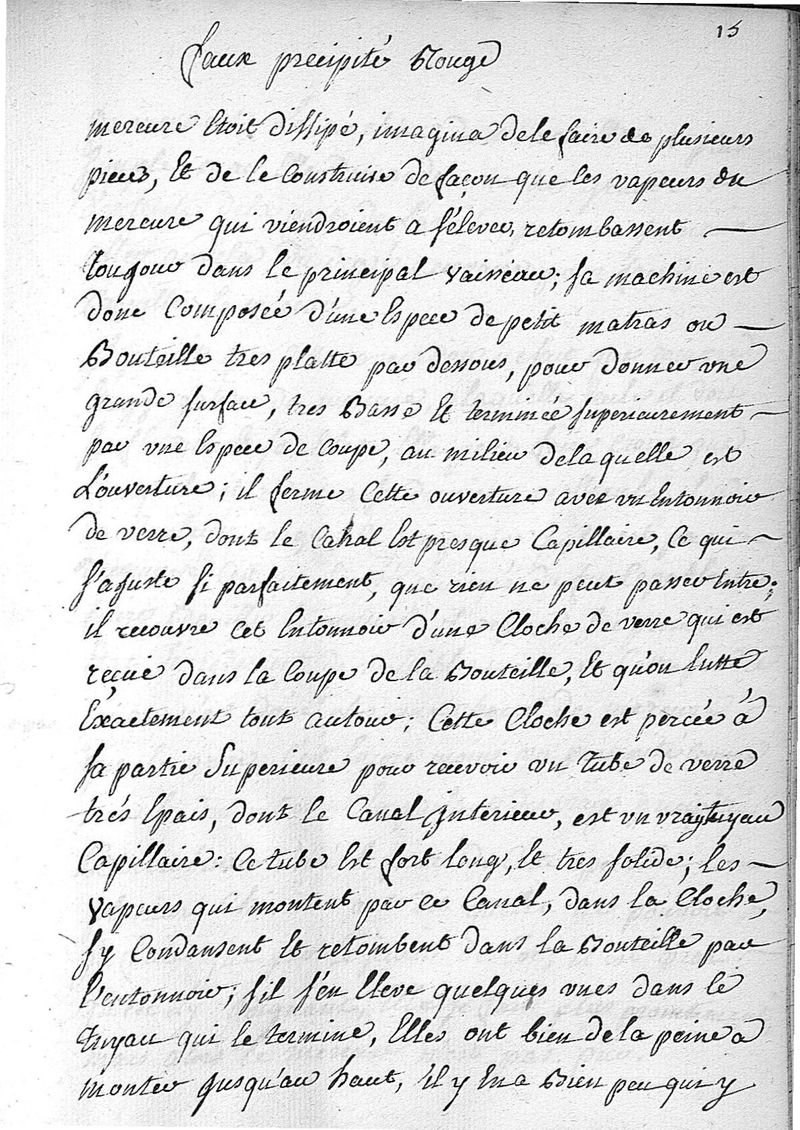 15
faux precipité Rouge
mercure Etoit dissipé, imagina de le faire de plusieurs
pieces, Et de le Construire de façon que les vapeurs du
mercure qui viendroient a s'élever, retombassent —
toujour dans le principal vaisseau; sa machine est
donc Composée d'une Espece de petit matras ou —
Bouteille tres platte par dessous, pour donner une
grande surface, tres Basse Et terminée superieurement —
par une Espece de Coupe, au milieu de laquelle est
L'ouverture; il ferme Cette ouverture avec un Entonnoir
de verre, dont le Canal Est presque Capillaire, Ce qui —
s'ajuste si parfaitement, que rien ne peut passer Entre;
il recouvre Cet Entonnoir d'une Cloche de verre qui est
reçue dans la Coupe de la Bouteille, Et qu'on lutte
Exactement tout autour; Cette Cloche est percée à
sa partie Superieure pour recevoir un tube de verre
trés Epais, dont le Canal jnterieur, est un vray tuyau
Capillaire: Ce tube Est fort long, Et tres solide; les —
Vapeurs qui montent par Ce Canal, dans la Cloche,
s'y Condansent Et retombent dans la Bouteille par
l'entonnoir; s'il s'en Eleve quelques unes dans le
tuyau qui le termine, Elles ont bien de la peine a
monter jusqu'au haut, il y En a Bien peu qui y